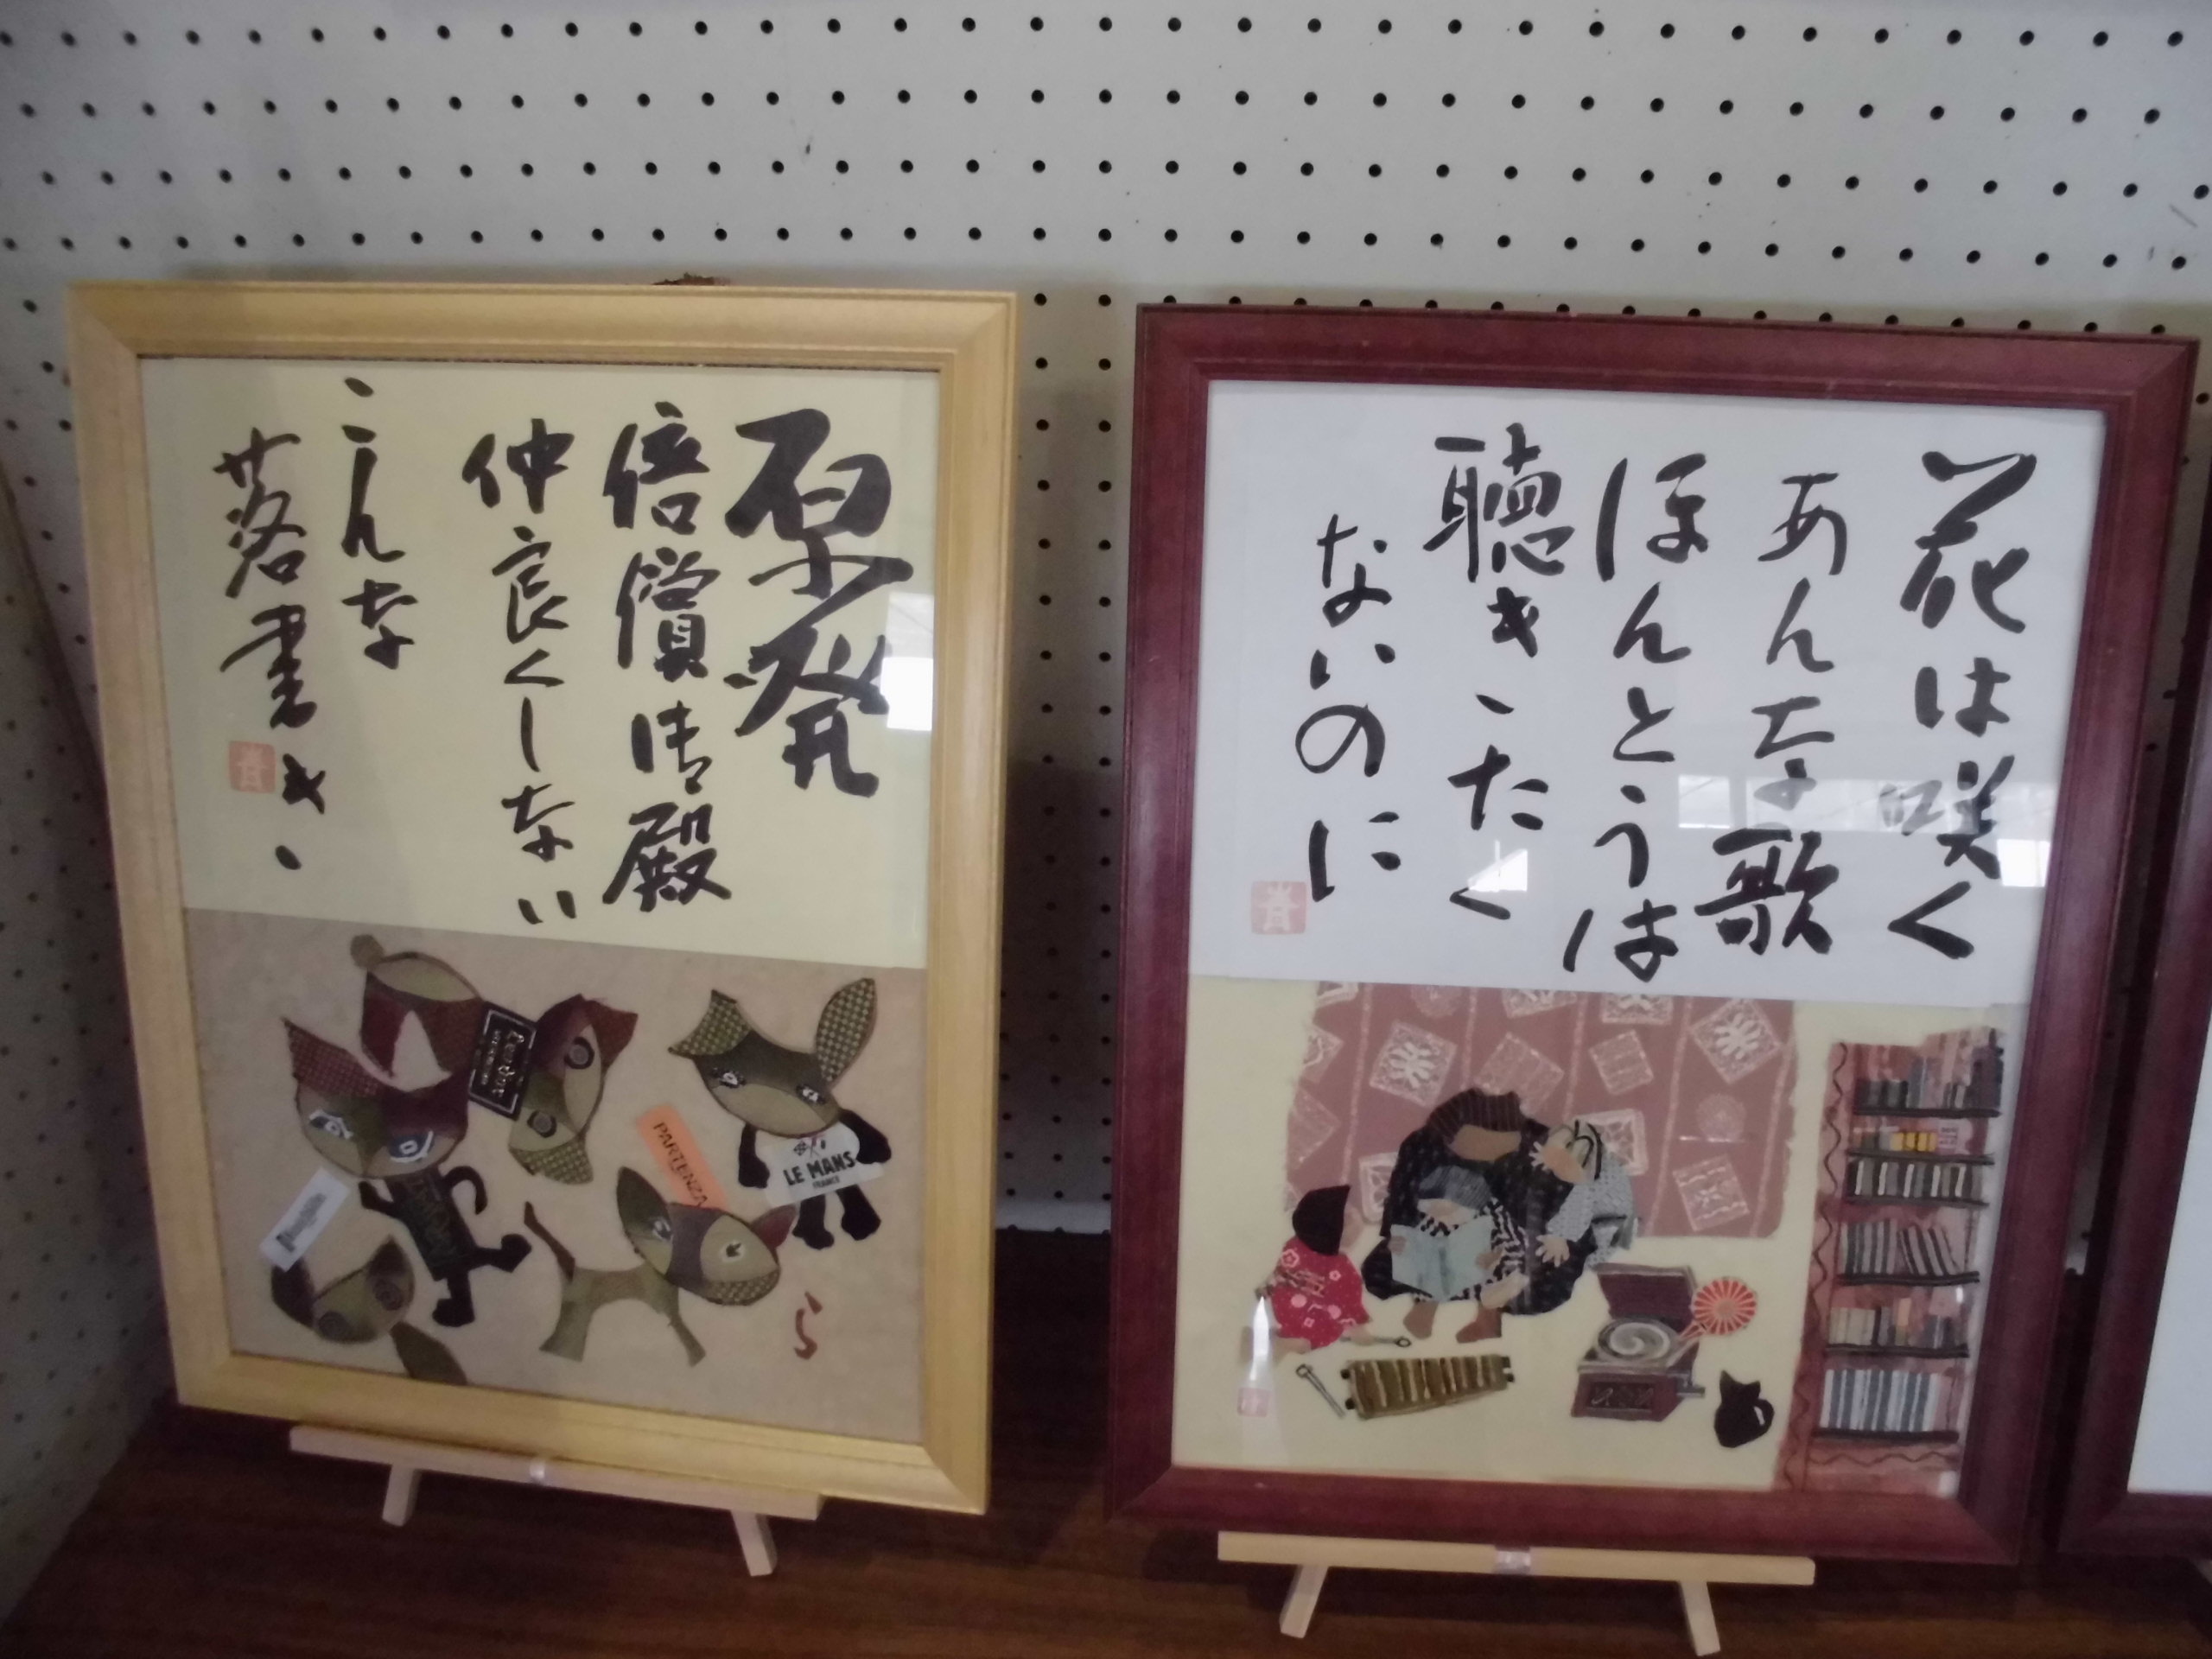 原発
倍償御殿
仲良くしない
こんな
落書き
PARTENZA
LE MANS
FRANCE
花は咲く
あんな歌
ほんとうは
聴きたく
ないのに